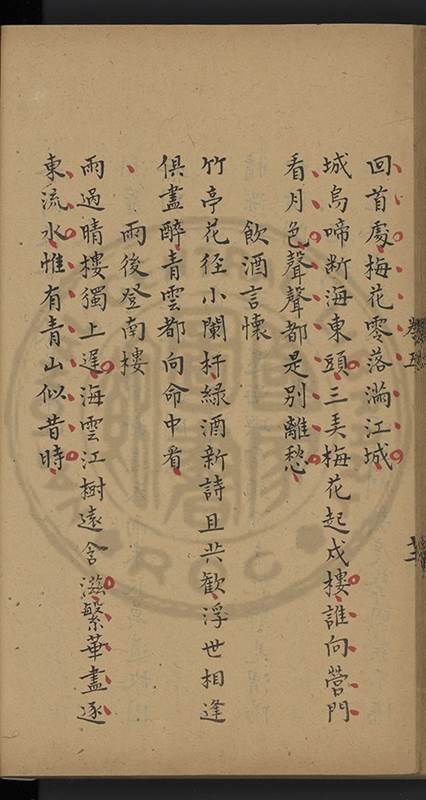 回首處梅花零落滿江城
城烏啼斷海東頭三美梅花起戍樓誰向營門
看月色聲聲都是別離愁
飲酒言懷
竹亭花徑小闌杆綠酒新詩且共歡浮世相逢
俱盡醉青雲都向命中看
雨後登南樓
雨過晴樓獨上遲海雲江樹遠含滋繁華盡逐
東流水惟有青山似昔時